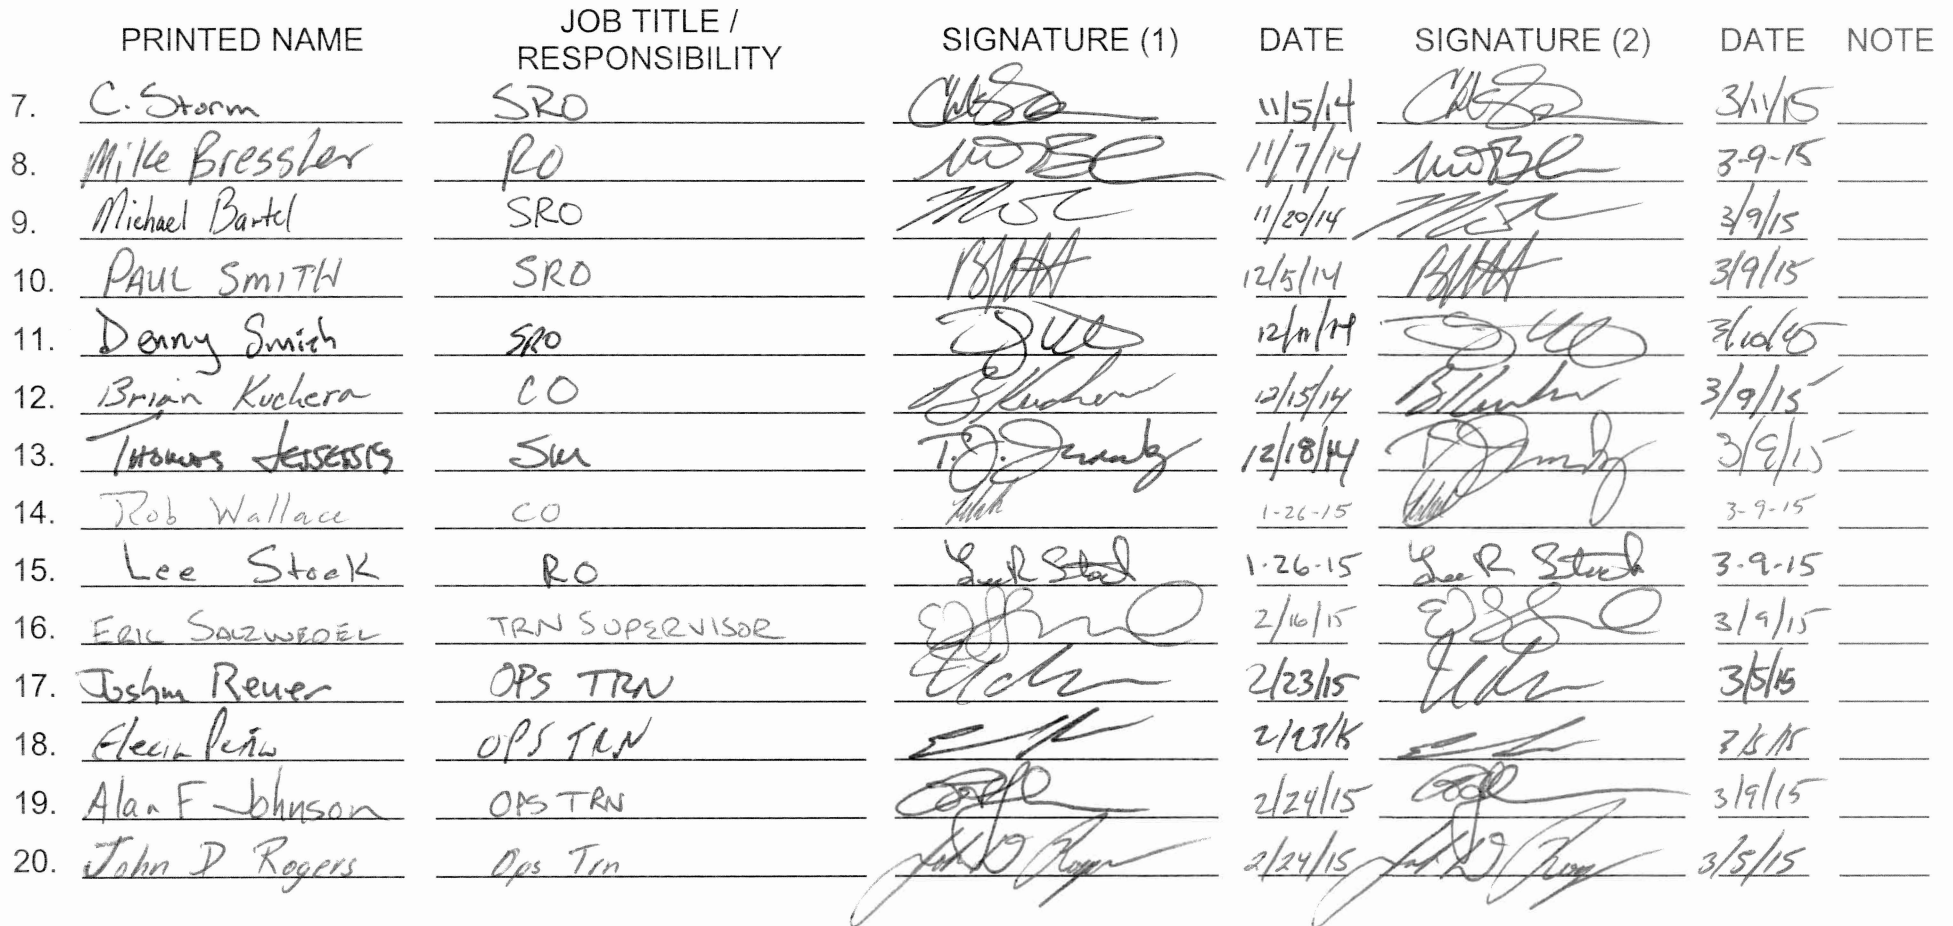 PRINTED NAME JOB TITLE / RESPONSIBILITY SIGNATURE (1) DATE SIGNATURE (2) DATE NOTE
7. C. Storm SRO 11/5/14 3/11/15
8. Mike Bressler RO 11/7/14 3-9-15
9. Michael Bartel SRO 11/20/14 3/9/15
10. PAUL SMITH SRO 12/5/14 3/9/15
11. Denny Smith SRO 12/11/14 3/10/15
12. Brian Kuchera CO B Kuchera 12/15/14 3/9/15
13. THOMAS SM T.J. 12/18/14 3/9/15
14. Rob Wallace CO 1-26-15 3-9-15
15. Lee Stock RO Lee R Stock 1-26-15 Lee R Stock 3-9-15
16. ERIC SALZWEDEL TRN SUPERVISOR 2/16/15 3/9/15
17. Joshua Reuer OPS TRN 2/23/15 3/5/15
18. Elecia Peña OPS TRN 2/23/15 3/5/15
19. Alan F Johnson OPS TRN 2/24/15 3/9/15
20. John D Rogers Ops Trn John D Rogers 2/24/15 John D Rogers 3/5/15